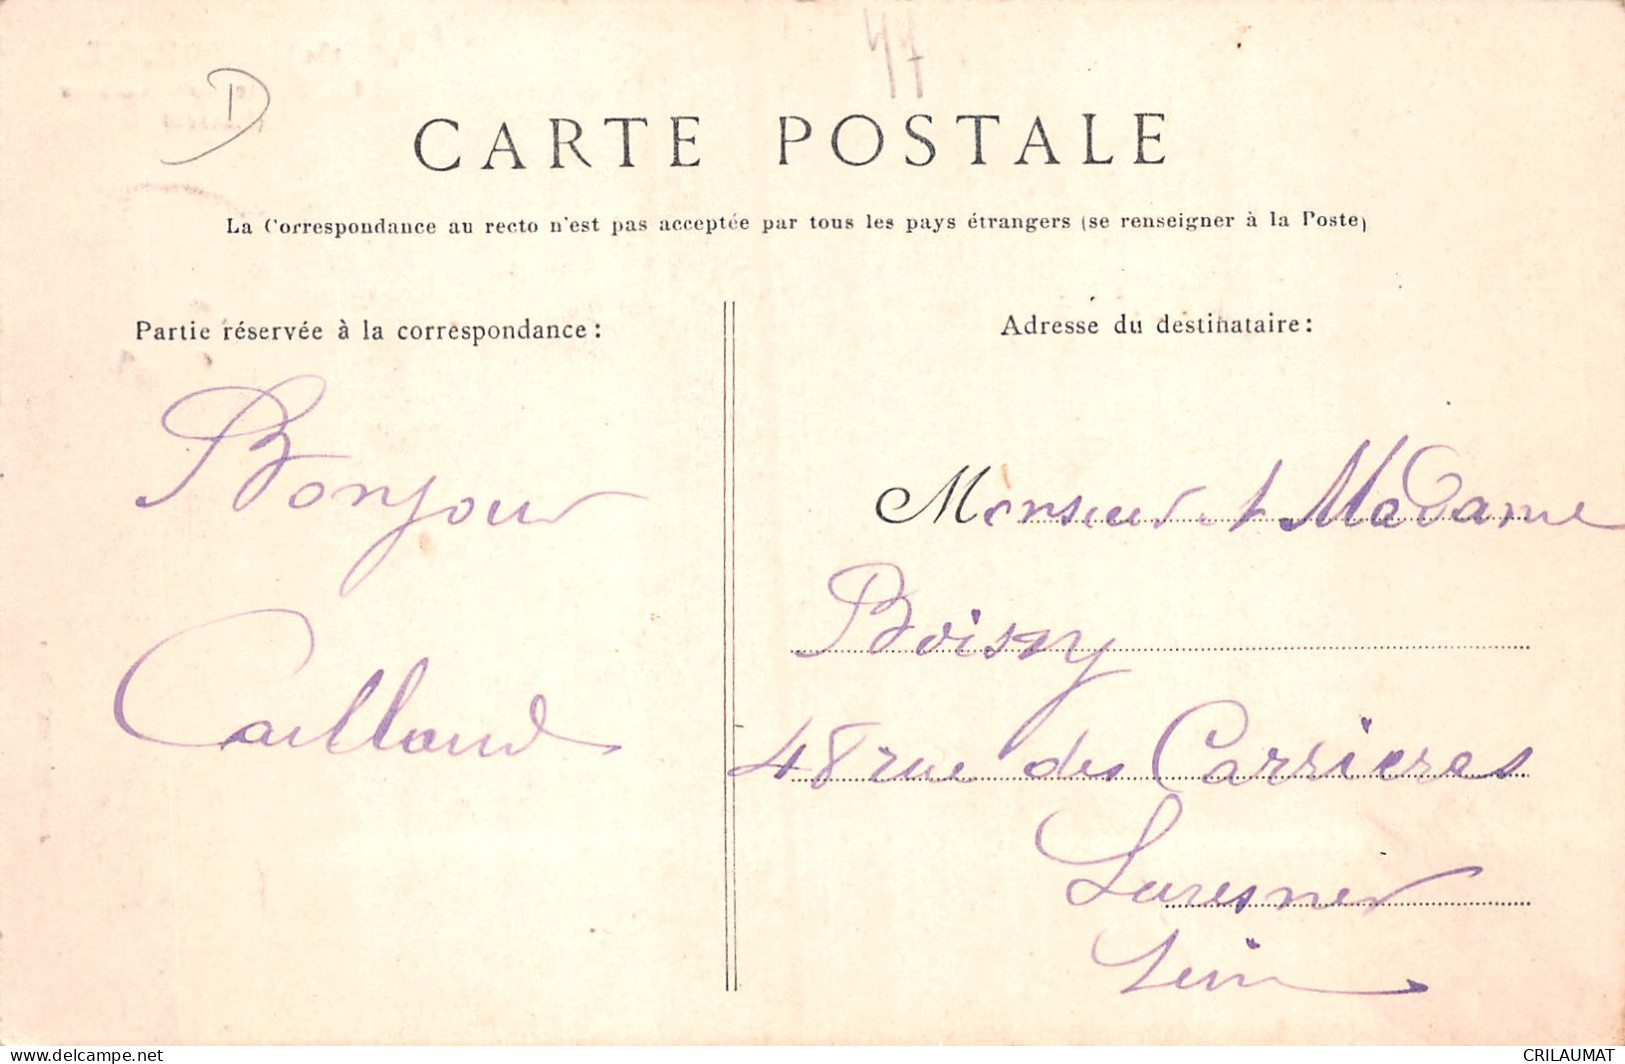 47
D
CARTE POSTALE
La Correspondance au recto n'est pas acceptée par tous les pays étrangers (se renseigner à la Poste)
Partie réservée à la correspondance :
Bonjour
Caillaud
Adresse du destinataire :
Monsieur et Madame
Boissy
48 rue des Carrieres
Suresnes
Seine
www.delcampe.net
CRILAUMAT